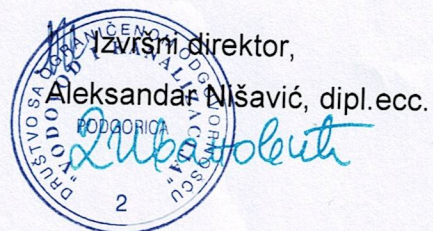 Izvršni direktor,
Aleksandar NIšavić, dipl.ecc.
DRUŠTVO SA OGRANIČENOM ODGOVORNOŠĆU
"VODOVOD I KANALIZACIJA"
PODGORICA
2